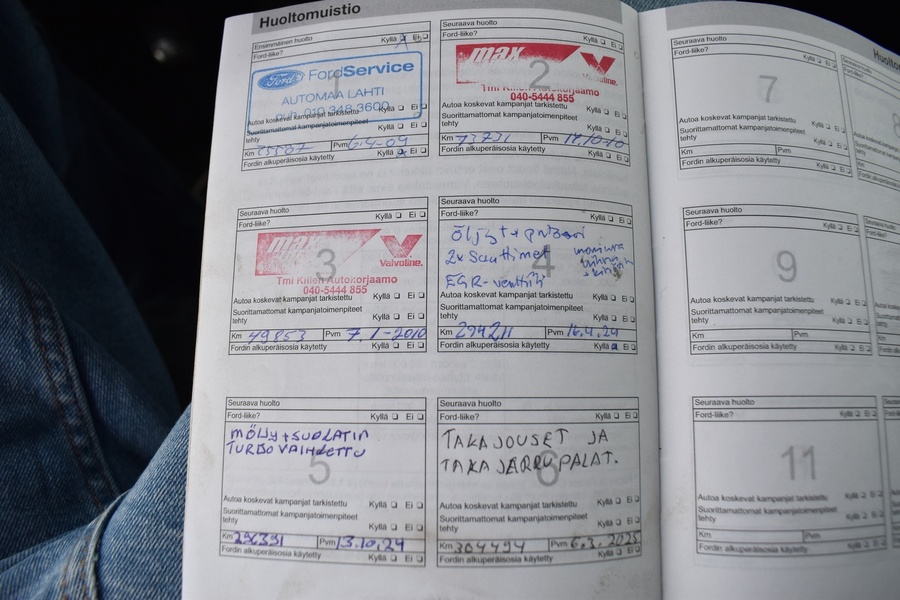 Huoltomuistio
Ensimmäinen huolto
Ford-liike? Kyllä Ei
Ford FordService
AUTOMAA LAHTI
puh. 010 348 3600
Autoa koskevat kampanjat tarkistettu Kyllä Ei
Suorittamattomat kampanjatoimenpiteet
tehty Kyllä Ei
Km Pvm
Fordin alkuperäisosia käytetty Kyllä Ei
Seuraava huolto
Ford-liike? Kyllä Ei
max
2
Valvoline.
Tmi Killen Autokorjaamo
040-5444 855
Autoa koskevat kampanjat tarkistettu Kyllä Ei
Suorittamattomat kampanjatoimenpiteet
tehty Kyllä Ei
Km 73731 Pvm
Fordin alkuperäisosia käytetty Kyllä Ei
Seuraava huolto
Ford-liike? Kyllä Ei
max
3
Valvoline.
Tmi Killen Autokorjaamo
040-5444 855
Autoa koskevat kampanjat tarkistettu Kyllä Ei
Suorittamattomat kampanjatoimenpiteet
tehty Kyllä Ei
Km 49853 Pvm 7.1-2010
Fordin alkuperäisosia käytetty Kyllä Ei
Seuraava huolto
Ford-liike? Kyllä Ei
Öljyt +
2x Suuttimet
4
EGR-venttiili
Autoa koskevat kampanjat tarkistettu Kyllä Ei
Suorittamattomat kampanjatoimenpiteet
tehty Kyllä Ei
Km 294211 Pvm 16.4.24
Fordin alkuperäisosia käytetty Kyllä Ei
Seuraava huolto
Ford-liike? Kyllä Ei
MÖLJY + SUOLATIN
TURBO VAIHDETTU
5
Autoa koskevat kampanjat tarkistettu Kyllä Ei
Suorittamattomat kampanjatoimenpiteet
tehty Kyllä Ei
Km 296391 Pvm 13.10.24
Fordin alkuperäisosia käytetty Kyllä Ei
Seuraava huolto
Ford-liike? Kyllä Ei
TAKAJOUSET JA
TAKAJARRUPALAT.
6
Autoa koskevat kampanjat tarkistettu Kyllä Ei
Suorittamattomat kampanjatoimenpiteet
tehty Kyllä Ei
Km 304494 Pvm 6.3.2025
Fordin alkuperäisosia käytetty Kyllä Ei
Seuraava huolto
Ford-liike? Kyllä Ei
7
Autoa koskevat kampanjat tarkistettu Kyllä Ei
Suorittamattomat kampanjatoimenpiteet
tehty Kyllä Ei
Km Pvm
Fordin alkuperäisosia käytetty Kyllä Ei
Seuraava huolto
Ford-liike? Kyllä Ei
9
Autoa koskevat kampanjat tarkistettu Kyllä Ei
Suorittamattomat kampanjatoimenpiteet
tehty Kyllä Ei
Km Pvm
Fordin alkuperäisosia käytetty Kyllä Ei
Seuraava huolto
Ford-liike? Kyllä Ei
11
Autoa koskevat kampanjat tarkistettu Kyllä Ei
Suorittamattomat kampanjatoimenpiteet
tehty Kyllä Ei
Km Pvm
Fordin alkuperäisosia käytetty Kyllä Ei